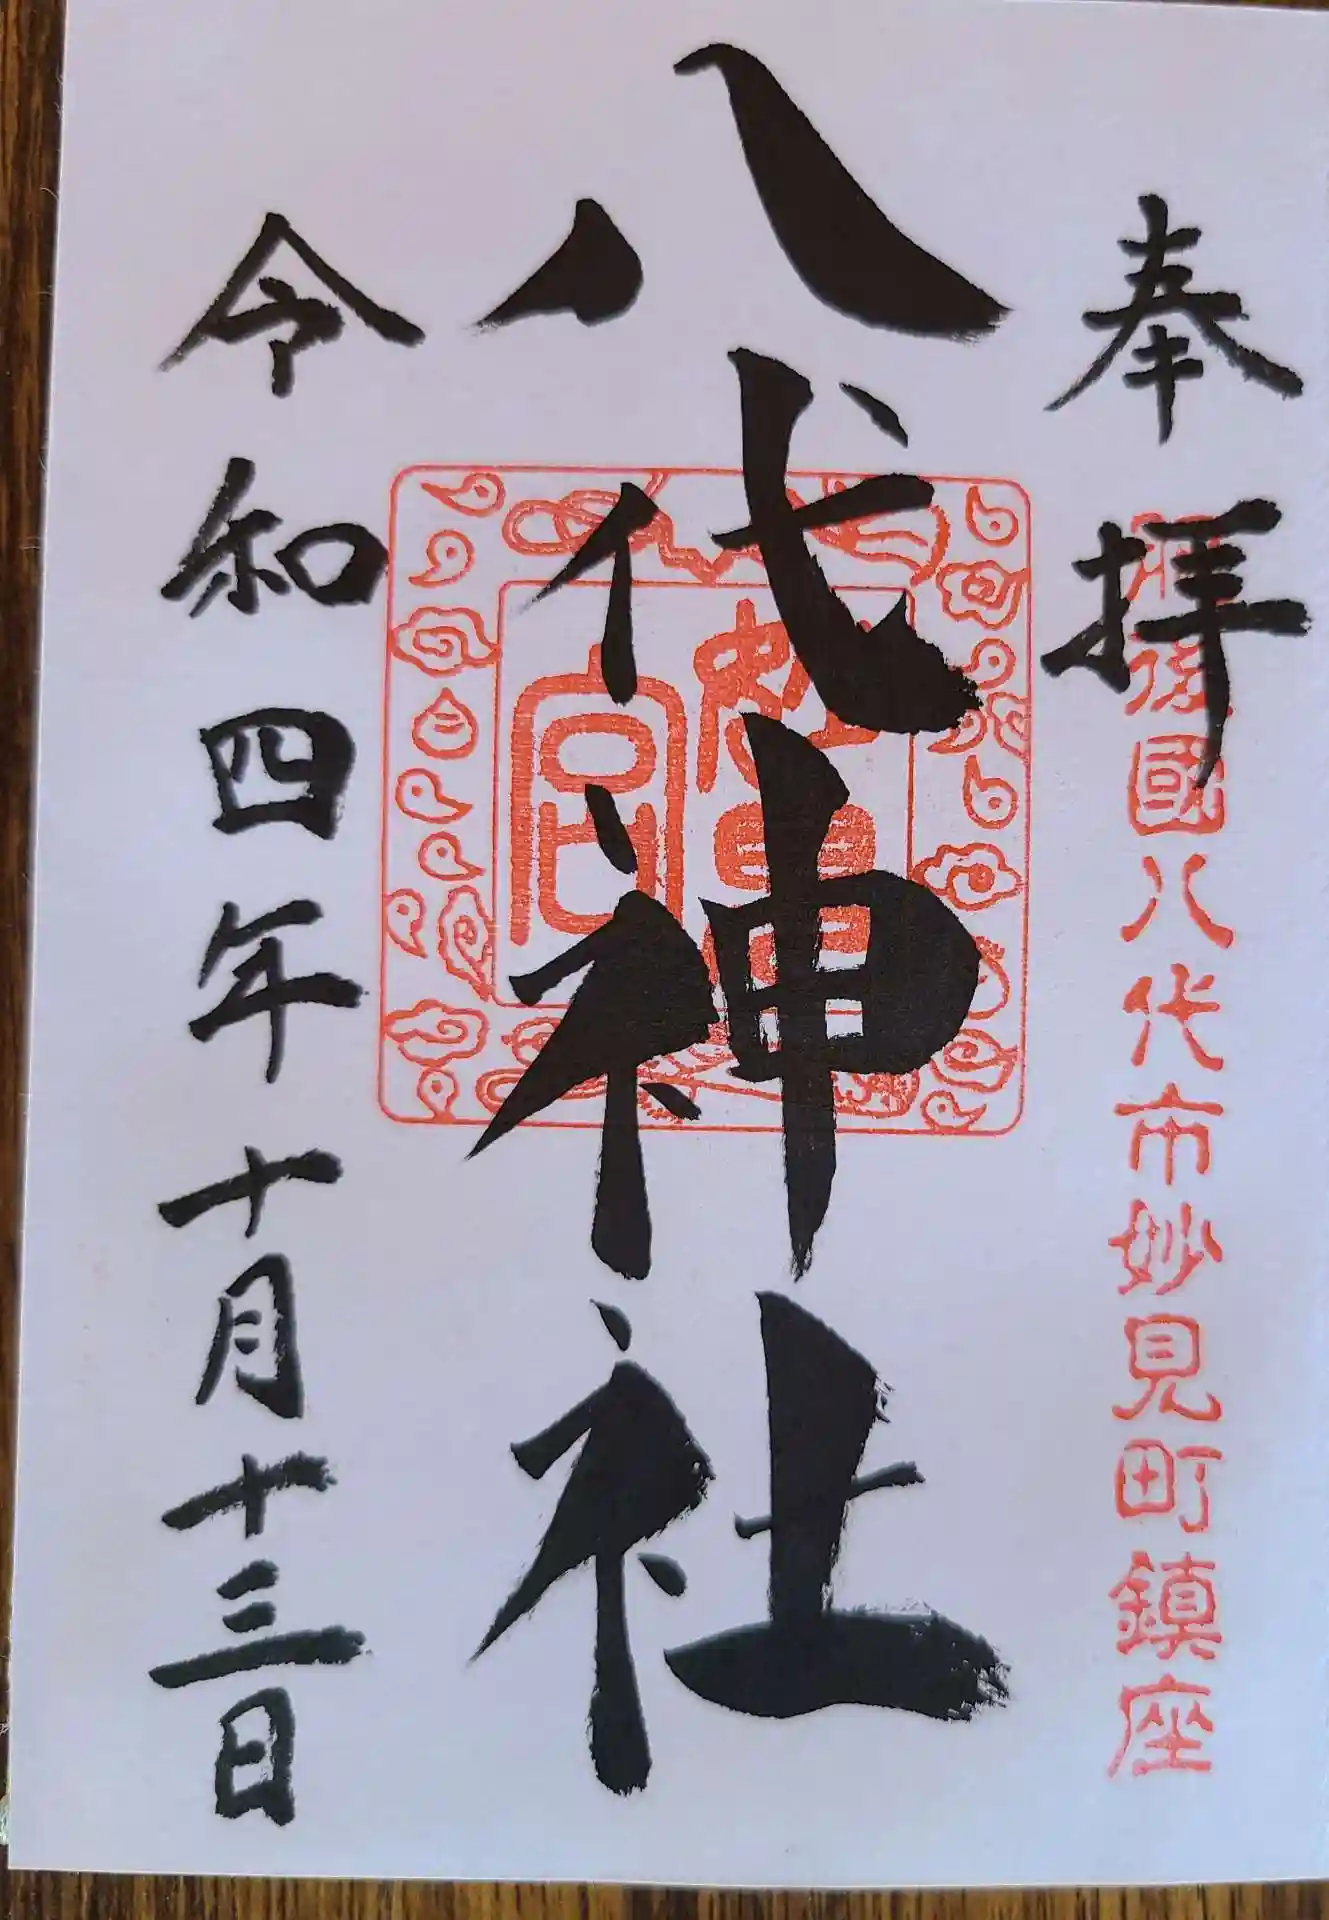 奉拝
肥後國八代市妙見町鎮座
八代神社
令和四年十月十三日